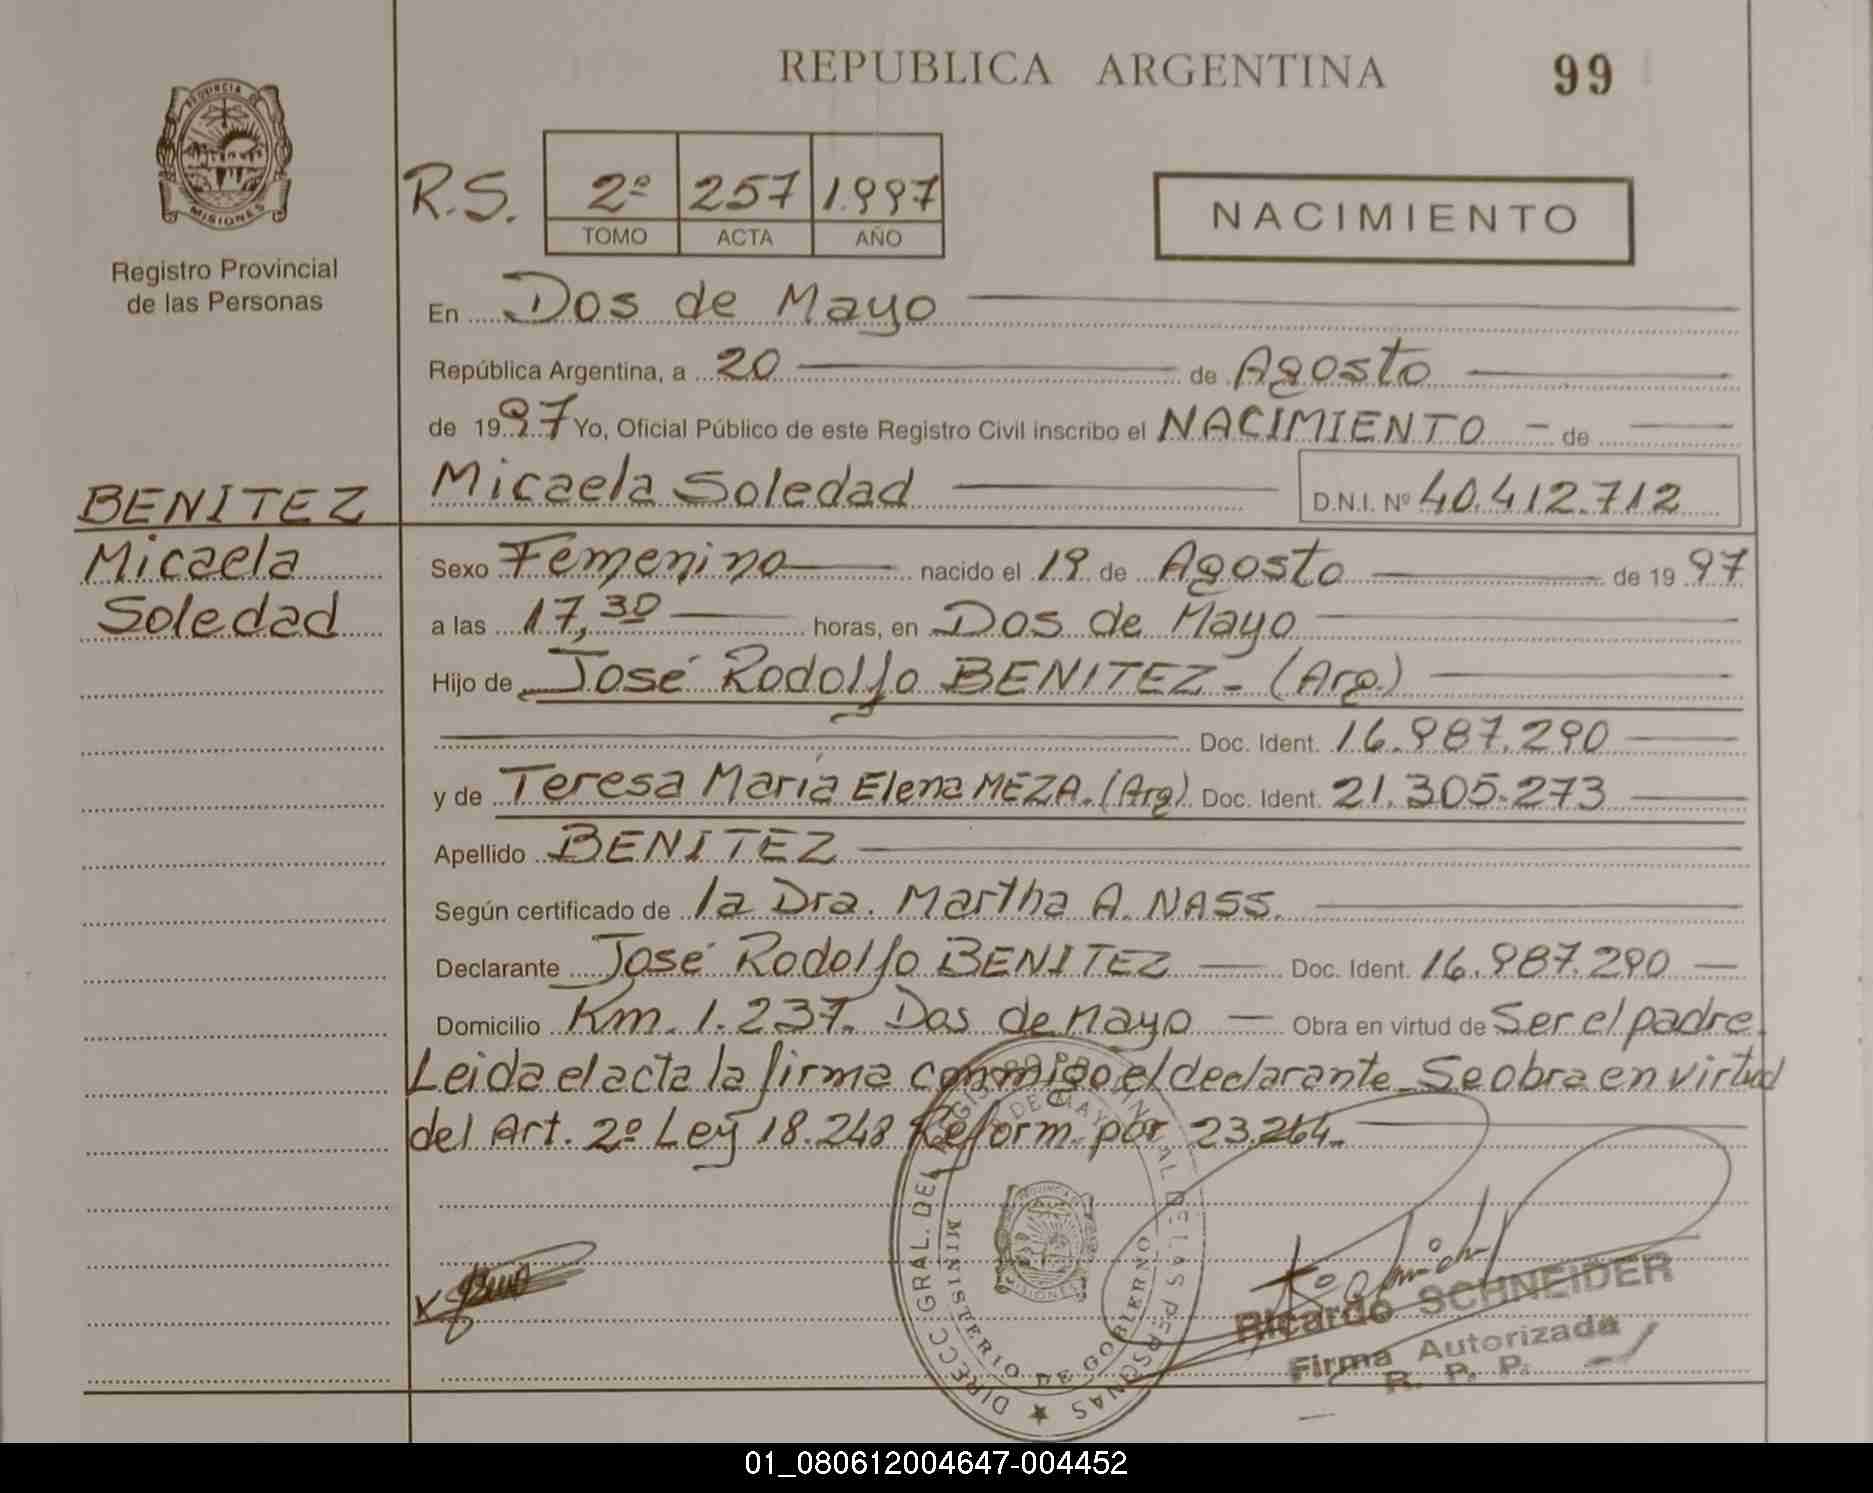 REPUBLICA ARGENTINA 99
PROVINCIA DE MISIONES
Registro Provincial
de las Personas
R.S. 2º 257 1.997
TOMO ACTA AÑO
NACIMIENTO
En Dos de Mayo
República Argentina, a 20 de Agosto
de 1997 Yo, Oficial Público de este Registro Civil inscribo el NACIMIENTO - de
Micaela Soledad D.N.I. Nº 40.412.712
BENITEZ
Micaela
Soledad
Sexo Femenino nacido el 19 de Agosto de 1997
a las 17,30 horas, en Dos de Mayo
Hijo de José Rodolfo BENITEZ - (Arg.)
Doc. Ident. 16.987.290
y de Teresa María Elena MEZA. (Arg). Doc. Ident. 21.305.273
Apellido BENITEZ
Según certificado de la Dra. Martha A. NASS.
Declarante José Rodolfo BENITEZ Doc. Ident. 16.987.290
Domicilio Km. 1.237. Dos de Mayo Obra en virtud de Ser el padre.
Leida el acta la firma conmigo el declarante. Se obra en virtud
del Art. 2º Ley 18.248 Reform. por 23.264.
DIRECC. GRAL. DEL REGISTRO PROVINCIAL DE LAS PERSONAS
DOS DE MAYO
MINISTERIO DE GOBIERNO
PROVINCIA DE MISIONES
Ricardo SCHNEIDER
Firma Autorizada
R. P. P.
01_080612004647-004452